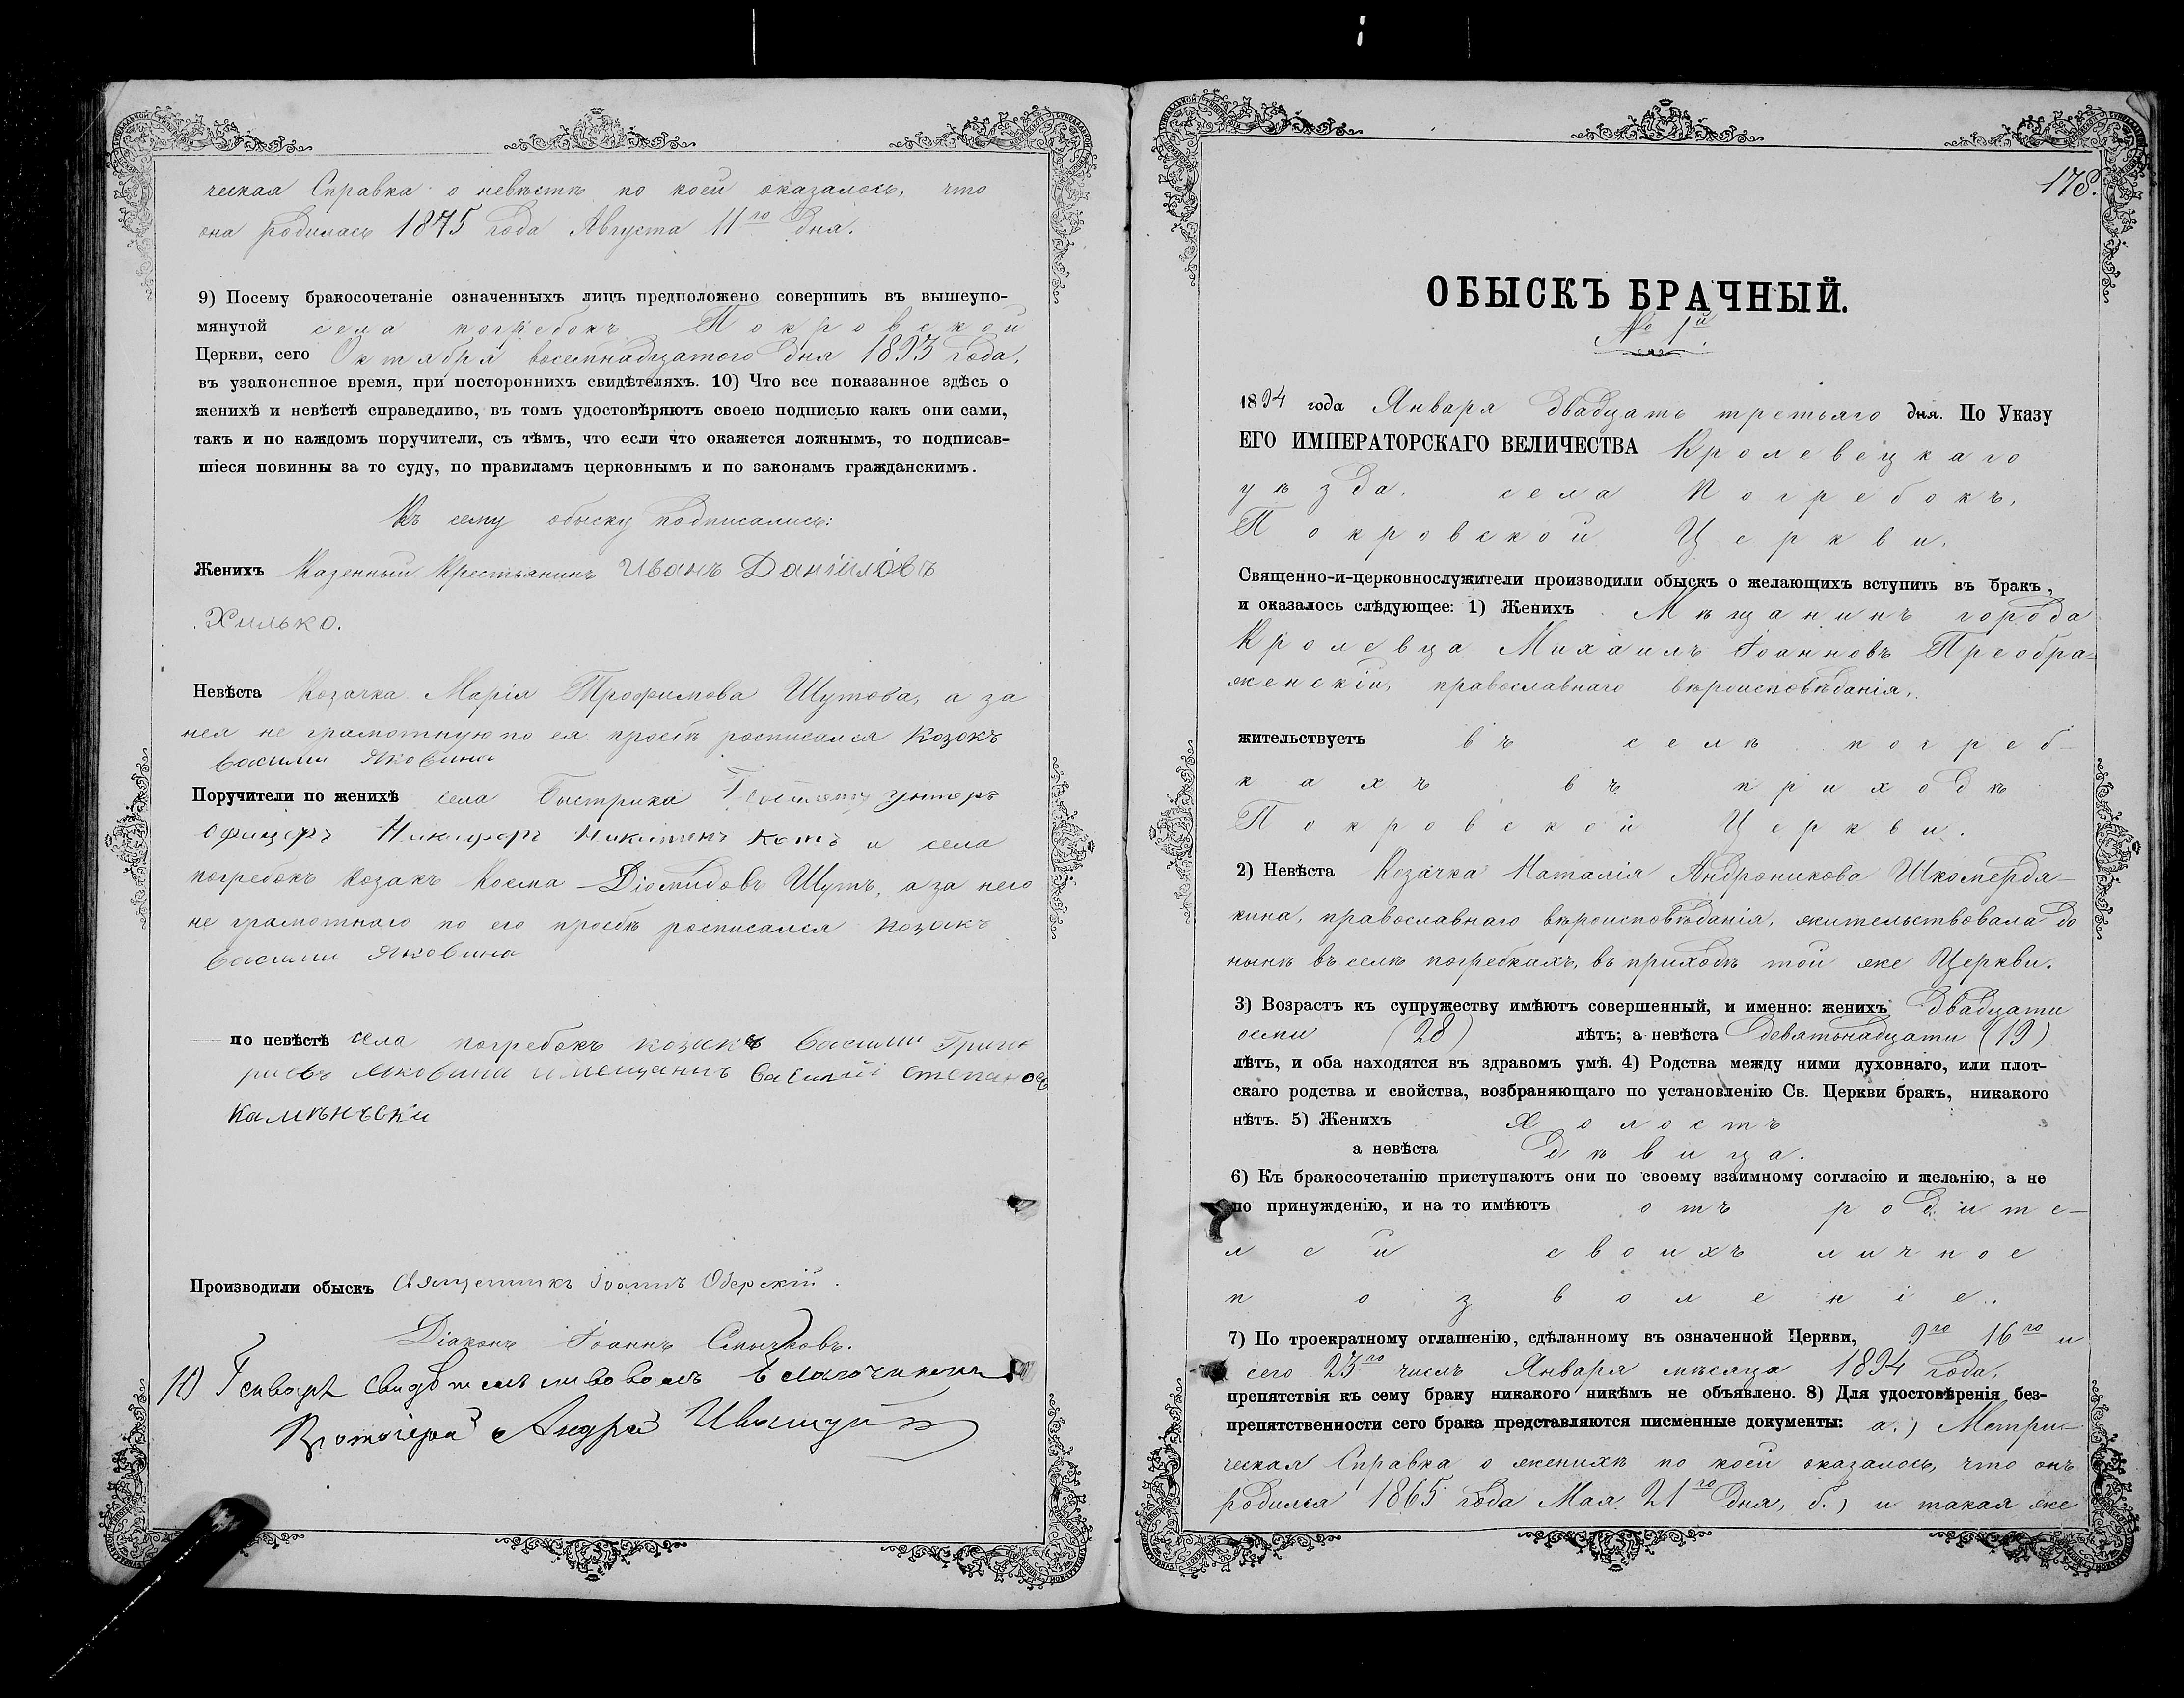 ческая Справка о невѣстѣ по коей оказалось, что
она родилась 1875 года Августа 11го дня.
9) Посему бракосочетаніе означенныхъ лицъ предположено совершить въ вышеупо-
мянутой села погребокъ Покровской
Церкви, сего Октября восемнадцатого дня 1893 года.
въ узаконенное время, при постороннихъ свидѣтеляхъ. 10) Что все показанное здѣсь о
женихѣ и невѣстѣ справедливо, въ томъ удостовѣряютъ своею подписью какъ они сами,
такъ и по каждомъ поручители, съ тѣмъ, что если что окажется ложнымъ, то подписав-
шіеся повинны за то суду, по правиламъ церковнымъ и по законамъ гражданскимъ.
Къ сему обыску подписались:
Женихъ Казенный Крестьянинъ Иванъ Даніиловъ
Хилько.
Невѣста Козачка Марія Трофимова Шутова, а за
нея не грамотную по ея просьбѣ росписался козокъ
василии Яковина
Поручители по женихѣ села Быстрика унтеръ
офицеръ Никифоръ Никитенъ Котъ и села
погребокъ козакъ Косма Діомидовъ Шутъ, а за него
не грамотнаго по его просьбѣ росписался козакъ
василии Яковина
— по невѣстѣ села погребокъ козакъ василии Григо
риевъ Яковина и мещанинъ Василій Степановъ
Камѣнъски
Производили обыскъ Священникъ Іоаннъ Озерскій.
Діаконъ Іоаннъ Смычковъ.
11) Генваря свидѣтельствовалъ Благочинный
Протоіерей Андрей
178.
ОБЫСКЪ БРАЧНЫЙ.
№ 1й.
1894 года Января двадцать третьяго дня. По Указу
ЕГО ИМПЕРАТОРСКАГО ВЕЛИЧЕСТВА Кролевецкаго
уѣзда, села Погребокъ,
Покровской Церкви.
Священно-и-церковнослужители производили обыскъ о желающихъ вступить въ бракъ,
и оказалось слѣдующее: 1) Женихъ Мѣщанинъ города
Кролевца Михаилъ Іоанновъ Преобра-
женскій, православнаго вѣроисповѣданія,
жительствуетъ въ селѣ погреб-
кахъ въ приходѣ
Покровской Церкви.
2) Невѣста Козачка Наталія Андроникова Шкомердя-
кина, православнаго вѣроисповѣданія, жительствовала до
нынѣ въ селѣ погребкахъ, въ приходѣ той же Церкви.
3) Возрастъ къ супружеству имѣютъ совершенный, и именно: женихъ двадцати
осми (28) лѣтъ; а невѣста девятьнадцати (19)
лѣтъ, и оба находятся въ здравомъ умѣ. 4) Родства между ними духовнаго, или плот-
скаго родства и свойства, возбраняющаго по установленію Св. Церкви бракъ, никакого
нѣтъ. 5) Женихъ Холостъ
а невѣста дѣвица.
6) Къ бракосочетанію приступаютъ они по своему взаимному согласію и желанію, а не
по принужденію, и на то имѣютъ отъ родите-
лей своихъ личное
позволеніе.
7) По троекратному оглашенію, сдѣланному въ означенной Церкви, 9го 16го и
сего 23го числъ Января мѣсяца 1894 года,
препятствія къ сему браку никакого никѣмъ не объявлено. 8) Для удостовѣренія без-
препятственности сего брака представляются писменные документы: а.) Метри-
ческая Справка о женихѣ по коей оказалось, что онъ
родился 1865 года Мая 21го дня, б.) и такая же